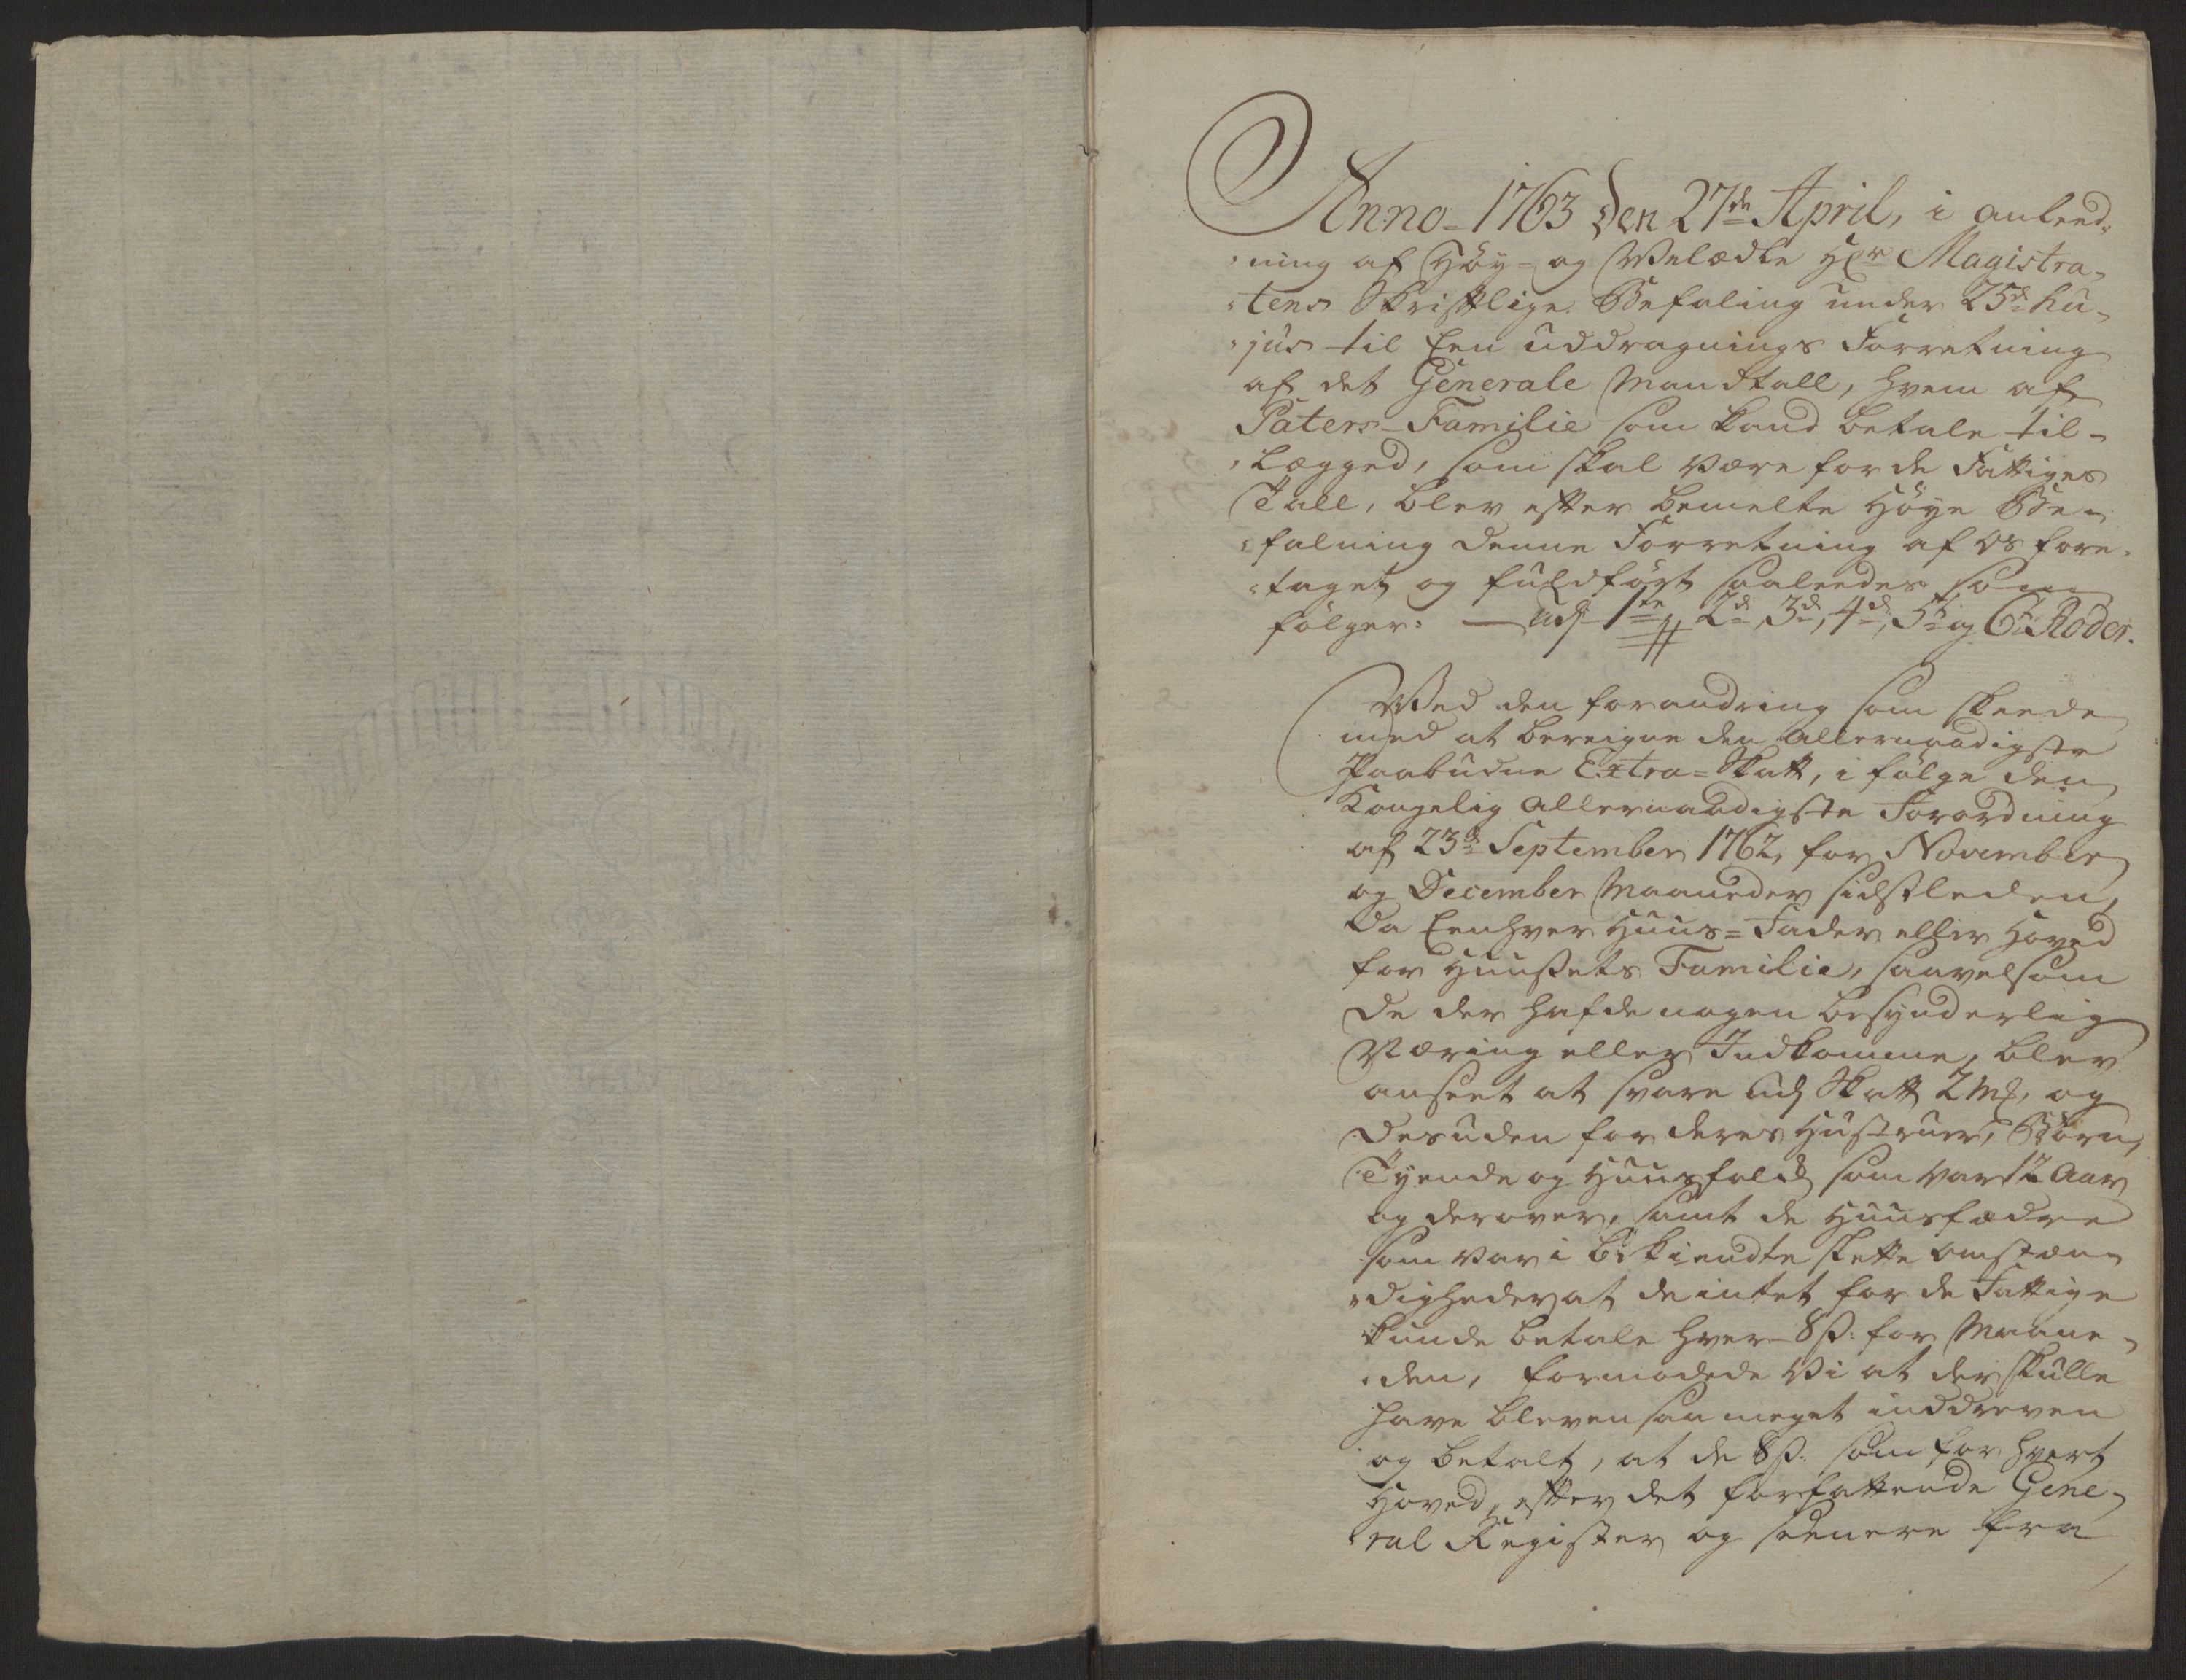 Anno 1763 den 27de April, i anleed-
-ning af Høy- og Velædle Hr Magistra-
-tens Skriftlige Befaling under 25de hu-
-jus til Een uddragnings Forretning
af det Generale Mandtall, hvem af
Paters-Familie som kand betale til-
-lægged, som skal være for de Fattiges
Tall, blev efter bemelte Høye Be-
-falning denne Forretning af os fore-
-taget og fuldført saaleedes som
følger: — udj 1te, 2de, 3de, 4de, 5te og 6te Roder.
Ved den forandring som skeede
med at bereigne den Allernaadigste
Paabudne Extra-Skatt, i følge den
Kongelig Allernaadigste Forordning
af 23de September 1762, for November
og December Maaneder sidstleden,
Da Eenhver Huus-Fader eller Hoved
for Huusets Familie, saavelsom
de der hafde nogen besynderlig
Næring eller Indkomme, blev
anseet at svare udj Skatt 2 mk, og
desuden for deres Hustruer, Børn,
Tyende og Huusfolck som var 12 Aar
og derover, samt de Huusfædre
som var i bekiendte slette omstæn-
-digheder at de intet for de Fattige
kunde betale hver 8 s: for Maane-
-den, formodede vi at der skulle
have bleven saa meget inddreven
og betalt, at de 8 s: som for hvert
Hoved, efter det forfattende Gene-
-ral Register og senere fra